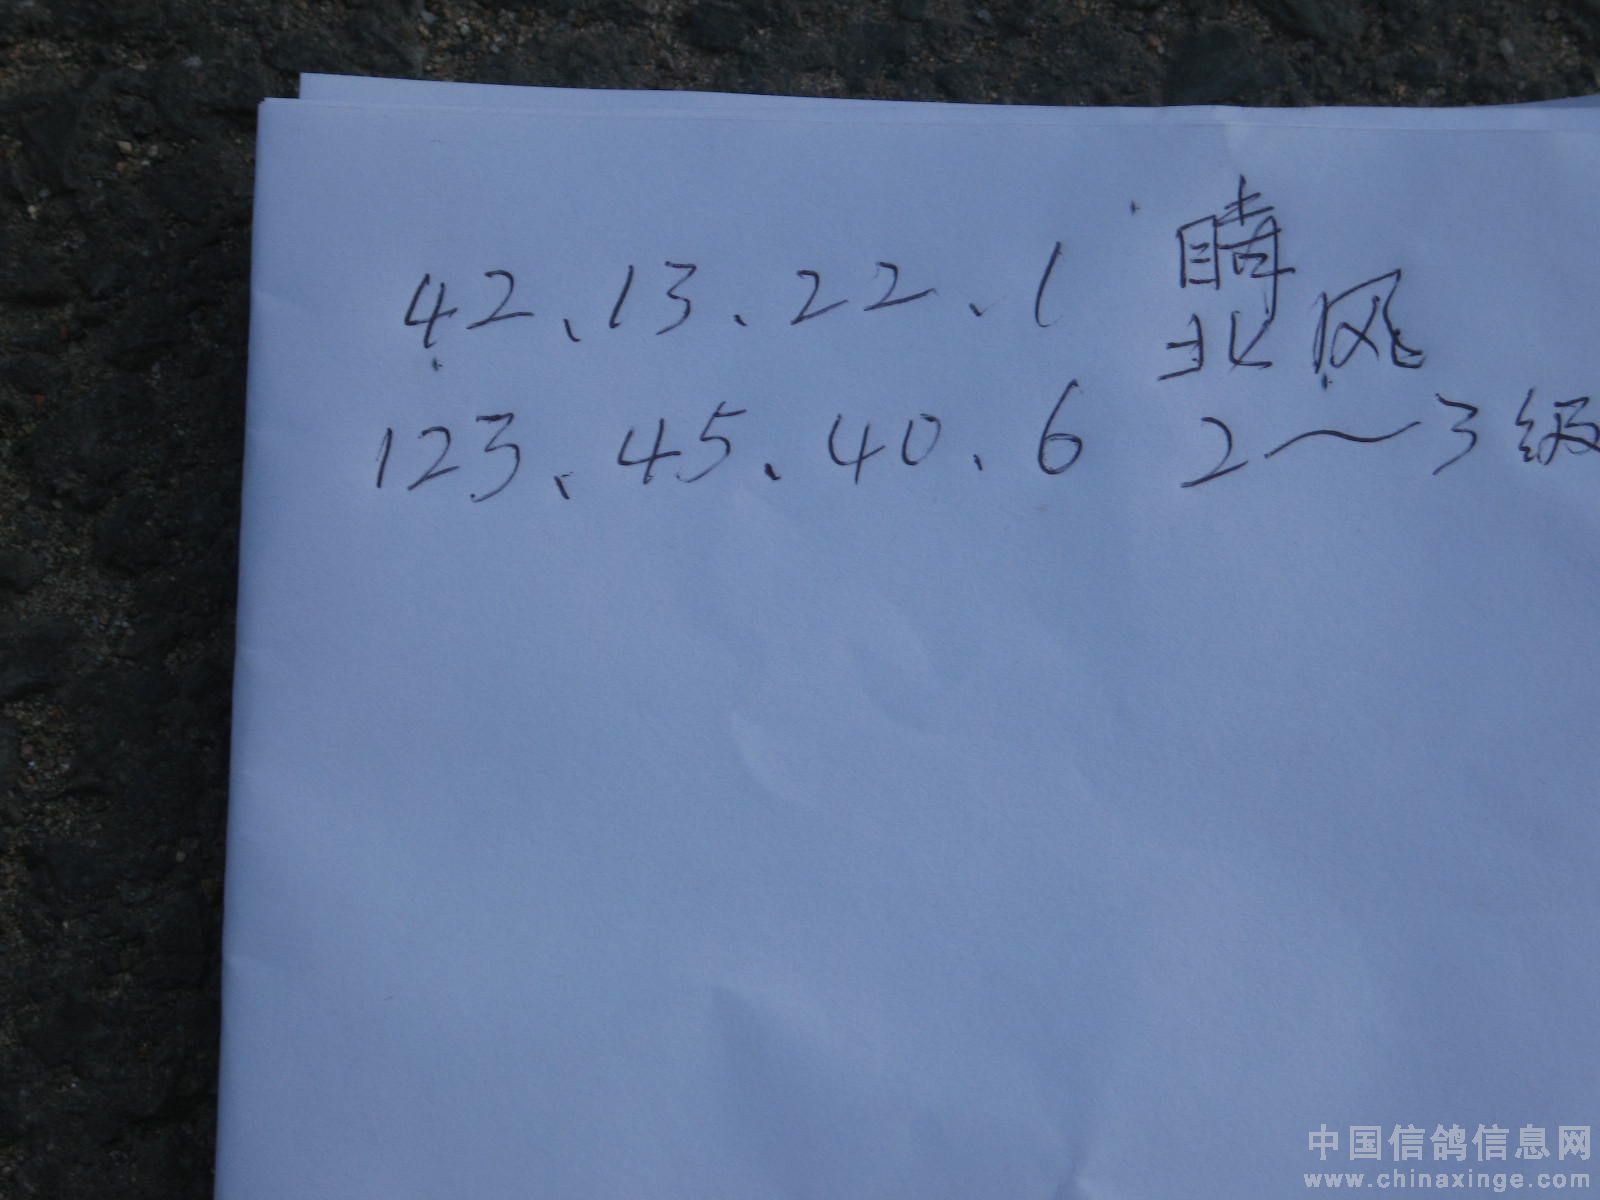 42、13、22、1 晴
北风
123、45、40、6 2~3级
中国信鸽信息网
www.chinaxinge.com